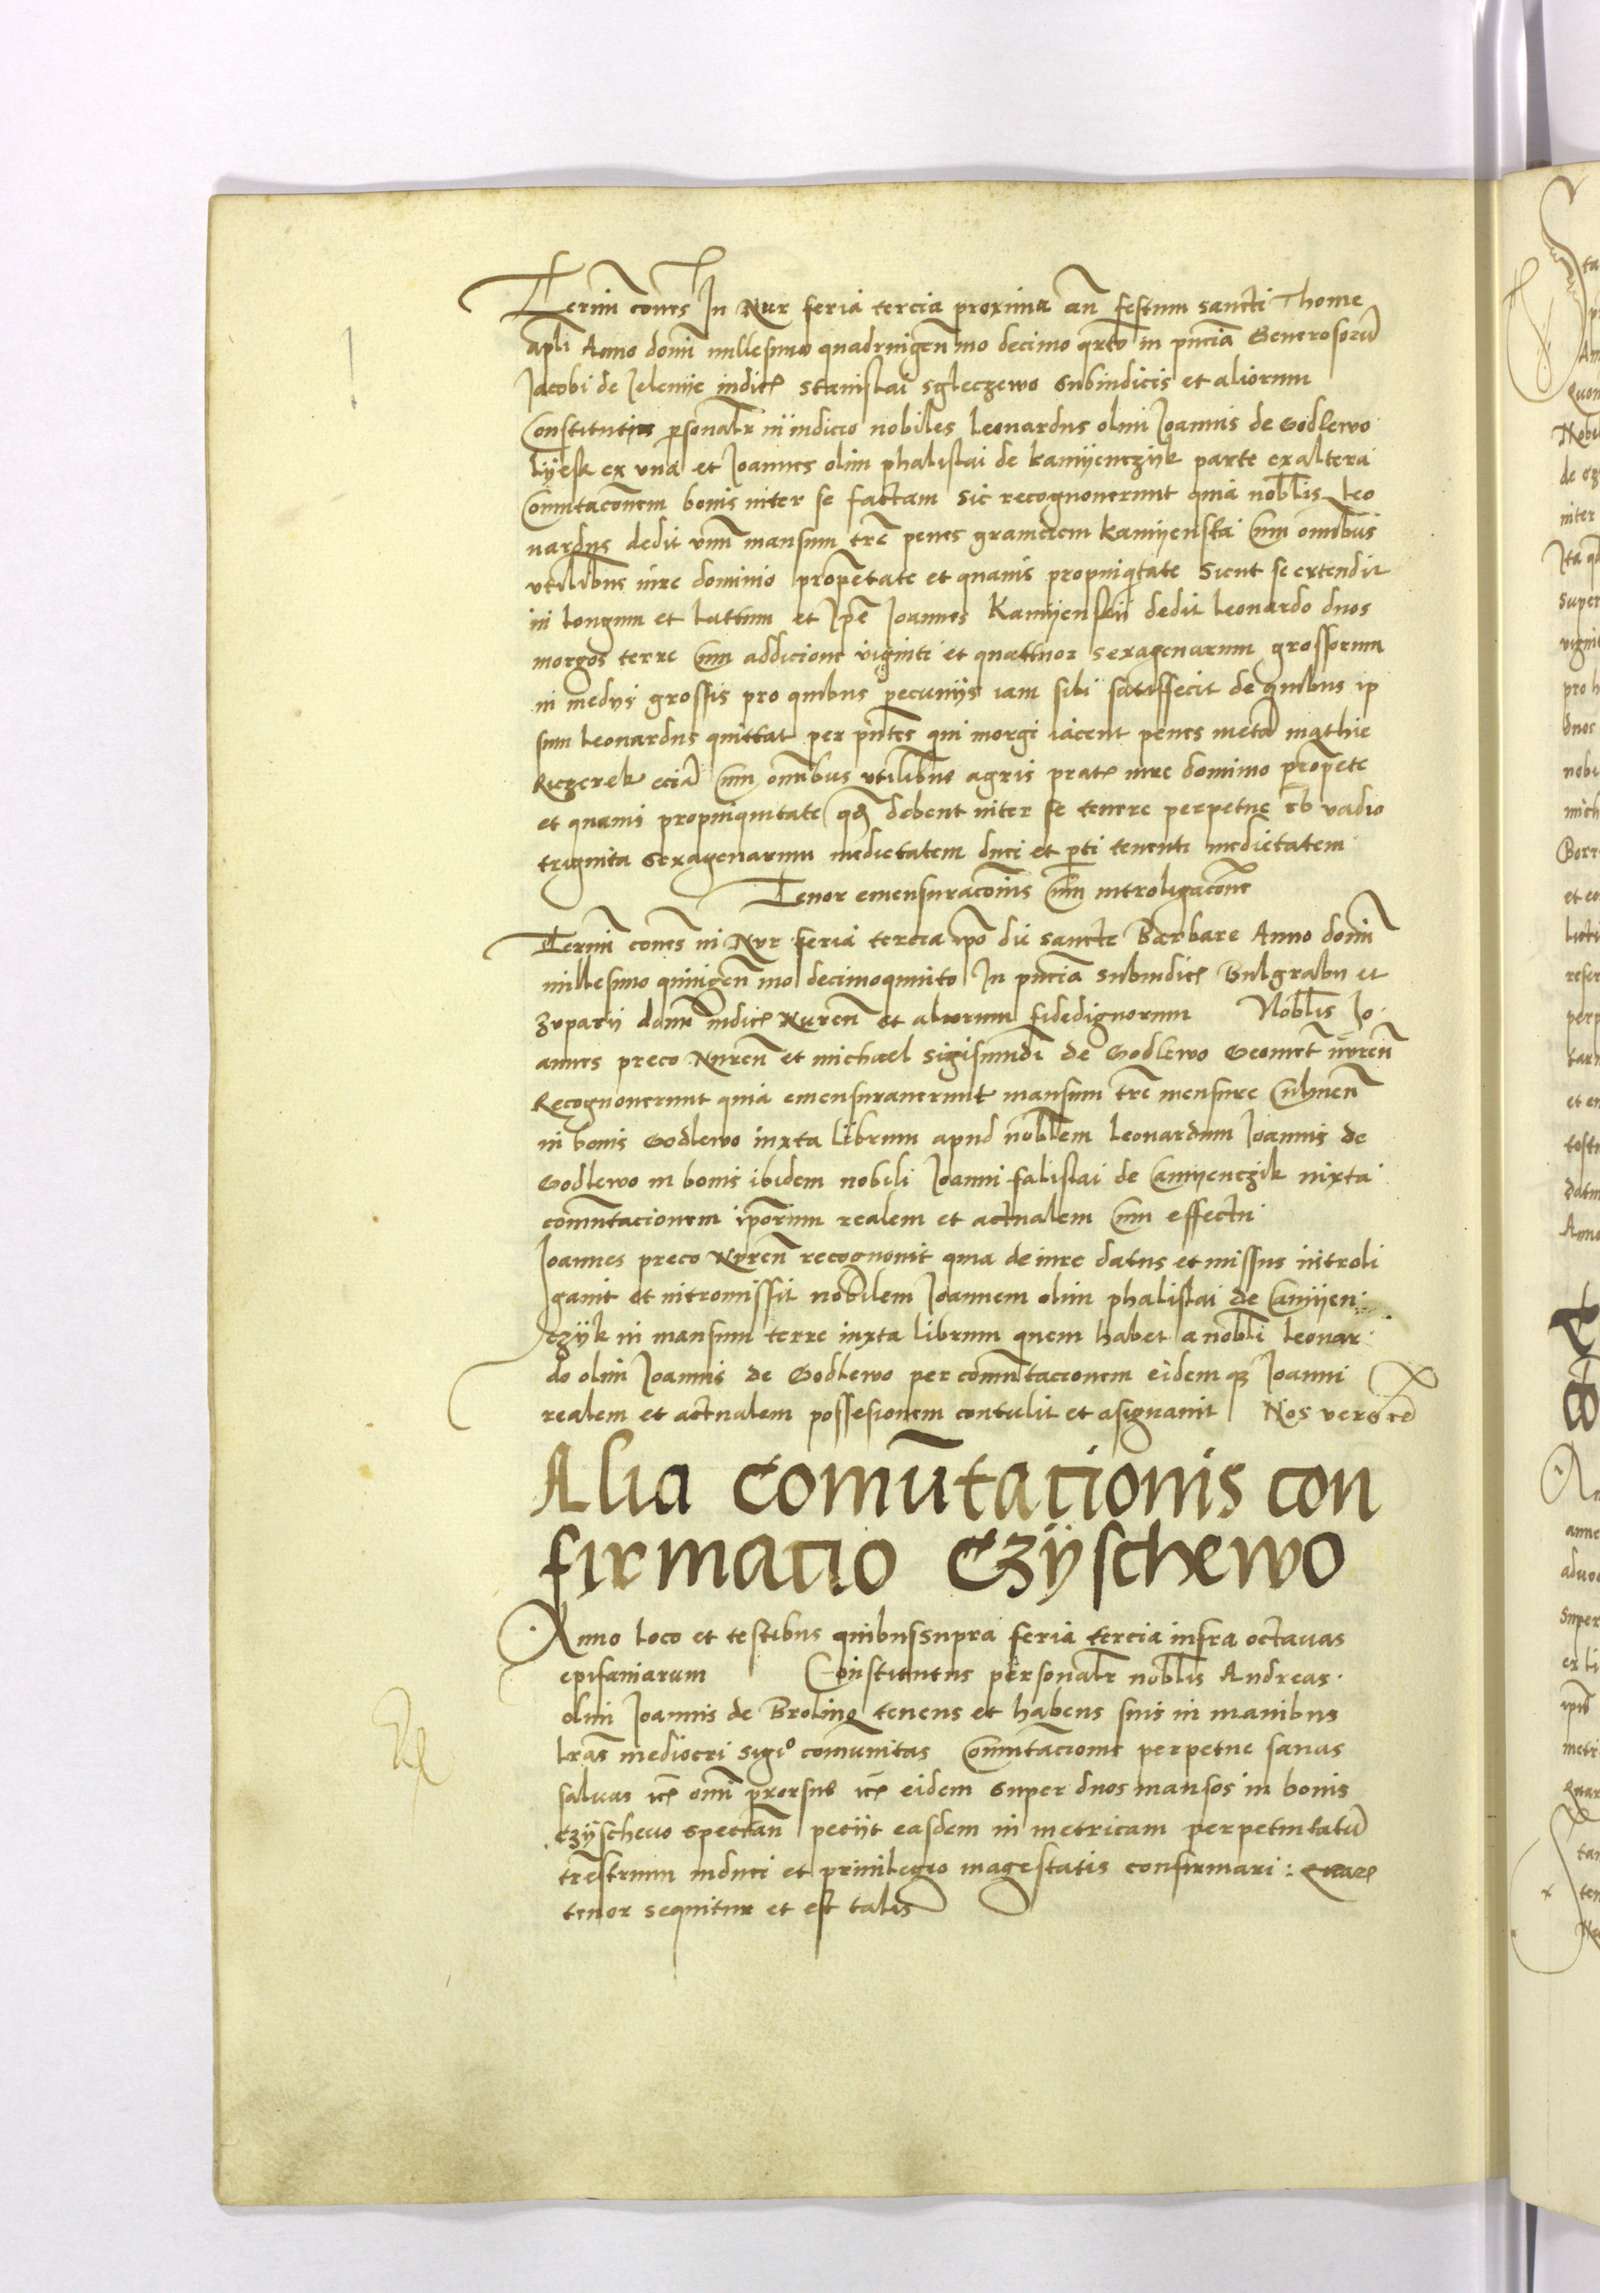 Termi͞ con͞es In Nur feria tercia proxima an͞ festum sancti Thome
apl͞i Anno domi͞ millesimo quadringen͞ mo decimo qrto in pn͞cia Generosoru͞
Jacobi de Jelenije iudic͞ Stanislai Sgleczewo Subiudicis et aliorum
Constitutis p͞sonal͞r in iudicio nobiles Leonardus olim Joannis de Godlewo
Lyesk ex una et Joannes olim phalislai de kamijenczijk parte exaltera
Com͞utacio͞nem bonis inter se factam sic recognoverunt quia nobl͞is Leo
nardus dedit unu͞ mansum tr͞e penes granicicm kamijenskai cum omnibus
utilibus iure dominio propr͞etate et quavis propniq͞tate Sicut se extendit
in longum et lattum et Ip͞e Joannes Kamijenskij dedit Leonardo duos
morgos terre cum addicione viginti et quattuor sexagenarum grossorum
in medijs grossis pro quibus pecunijs iam sibi satisfecit de quibus ip
sum Leonardus quittat per pn͞tes qui morgi iacent penes meta͞ mathie
Kiczerek ecia͞ cum omnibus utilibus agris prat͞ iure dominio prop͞ete
et quavis propinquitate q͞ debent inter se tenere perpetue s͞b vadio
triginta sexagenarum medietatem duci et p͞ti tenenti medietatem
Tenor emensuracionis cum introligacon͞e
Termi͞ con͞es in Nur feria tercia ipo͞ die sancte Barbare Anno domi͞
millesimo quingen͞ mo decimoquinto In pn͞cia subiudic͞ Bulgrabii et
zuparij domi͞ iudic͞ Nuren͞ et aliorum fidedignorum Nobl͞is Jo
annes preco Nuren͞ et michael Sigismundi de Godlewo Geomet͞ nuren͞
Recognoverunt quia emensuraverunt mansum tr͞e mensure culmen͞
in bonis Godlewo iuxta librum apud nobl͞em Leonardum Joannis de
Godlewo in bonis ibidem nobili Joanni falislai de Camijenczik iuxta
com͞utacionem ip͞orum realem et actualem cum effectu
Joannes preco Nuren͞ recognovit quia de iure datus et missus introli
gavit et intromissit nobilem Joannem olim phalislai de Camijen
czijk in mansum terre iuxta librum quem habet a nobl͞i Leonar
do olim Joannis de Godlewo per com͞utacionem eidem q͞ Joanni
realem et actualem possesionem contulit et asignavit Nos vero etc͞
Alia Comu͞tacionis con
firmatio Czijschewo
Anno loco et testibus quibussupra feria tercia infra octavas
epifaniarum Constitutus personal͞r nobl͞is Andreas
olim Joannis de Brolino tenens et habens suis in manibus
l͞ras mediocri sigi͞o comunitas Com͞utacione perpetue sanas
salvas ic͞ om͞i prorsus ic͞ eidem super duos mansos in bonis
Czijschevo spectan͞ peciit easdem in metricam perpetuitatu͞
tr͞estrium induci et privilegio magestatis confirmari : Quar͞
tenor sequitur et est talis